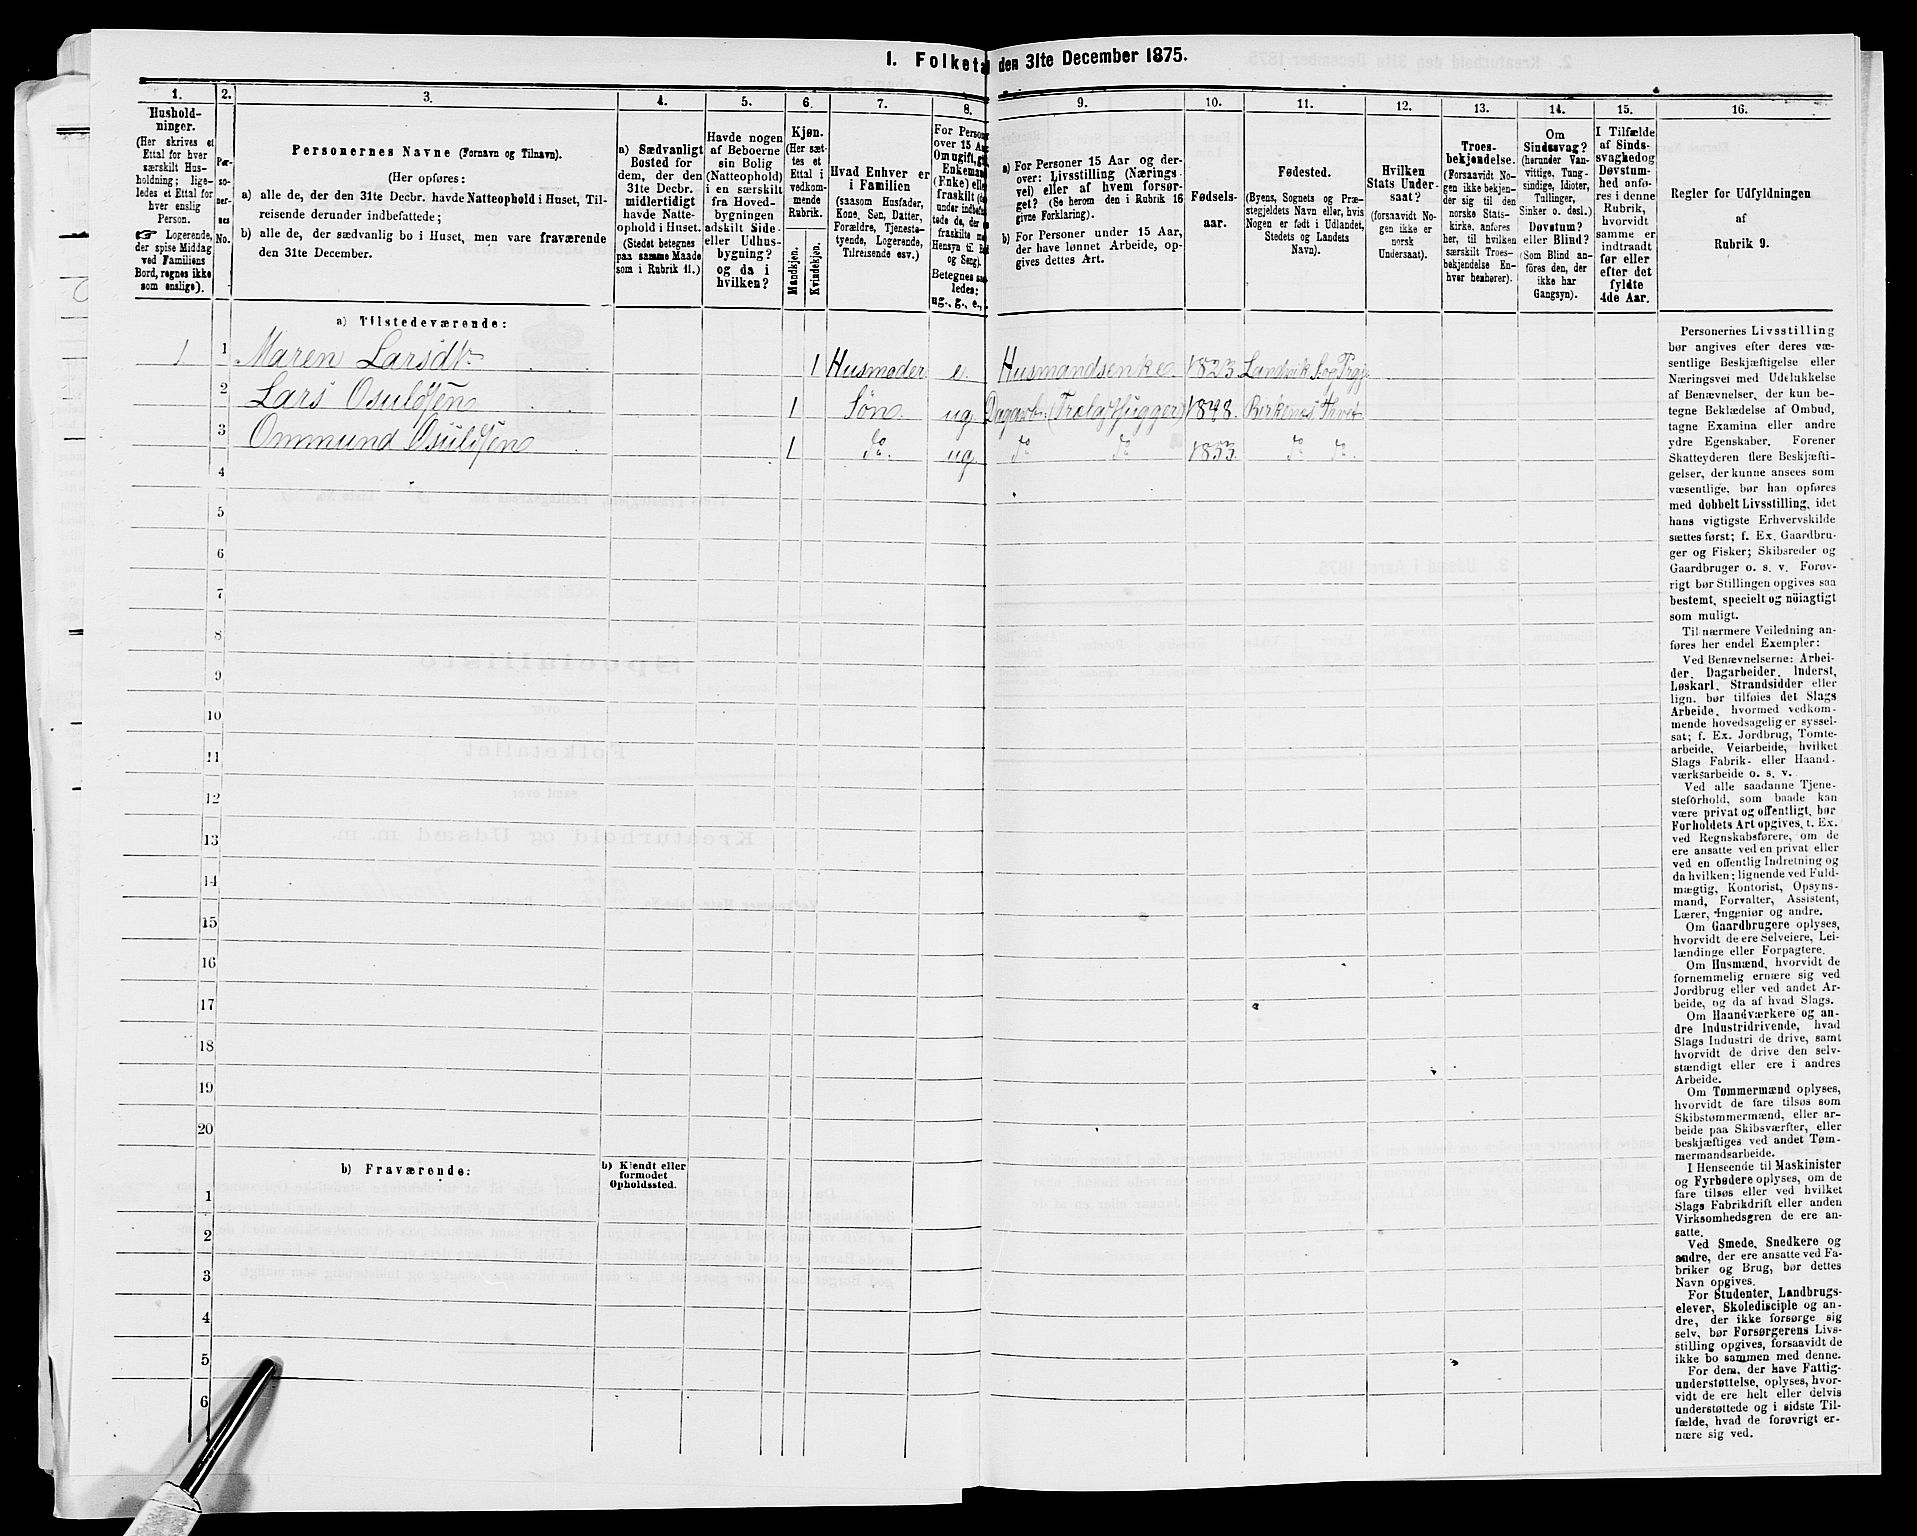 1. Folketal den 31te December 1875.
1. 2. 3. 4. 5. 6. 7. 8. 9. 10. 11. 12. 13. 14. 15. 16.
Hushold-
ninger.
(Her skrives et
Ettal for hver
særskilt Hus-
holdning; lige-
ledes et Ettal for
hver enslig
Person.
☞ Logerende,
der spise Middag
ved Familiens
Bord, regnes ikke
som enslige).
Per-
so-
ner-
nes
No.
Personernes Navne (Fornavn og Tilnavn).
(Her opføres:
a) alle de, der den 31te Decbr. havde Natteophold i Huset, Til-
reisende derunder indbefattede;
b) alle de, der sædvanlig bo i Huset, men vare fraværende
den 31te December.
a) Sædvanligt
Bosted for
dem, der den
31te Decbr.
midlertidigt
havde Natte-
ophold i Huset.
(Stedet betegnes
paa samme Maade
som i Rubrik 11.)
Havde nogen
af Beboerne
sin Bolig
(Natteophold)
i en særskilt
fra Hoved-
bygningen
adskilt Side-
eller Udhus-
bygning?
og da i
hvilken?
Kjøn.
(Her sæt-
tes et
Ettal i
vedkom-
mende
Rubrik.
Mandkjøn.
Kvindekjøn.
Hvad Enhver er
i Familien
(saasom Husfader,
Kone, Søn, Datter,
Forældre, Tjeneste-
tyende, Logerende,
Tilreisende osv.)
For Persone
over 15 Aa
Om ugift, gif
Enkemand
(Enke) elle
fraskilt
Betegnes saa
ledes:
ug., g., e.,
a) For Personer 15 Aar og der-
over: Livsstilling (Nærings
vei) eller af hvem forsør-
get? (Se herom den i Rubrik 16
givne Forklaring).
b) For Personer under 15 Aar,
der have lønnet Arbeide, op-
gives dettes Art.
Fødsels-
aar.
Fødested.
(Byens, Sognets og Præ-
stegjeldets Navn eller, hvis
Nogen er født i Udlandet,
Stedets og Landets
Navn).
Hvilken
Stats Under-
saat?
(forsaavidt No-
gen ikke er
norsk
Undersaat).
Troes-
bekjendelse.
(Forsaavidt No-
gen ikke bekjen-
der sig til den
norske Stats-
kirke, anføres
her, til hvilken
særskilt Troes-
bekjendelse En-
hver henhører).
Om
Sindssvag?
(herunder Van-
vittige, Tung-
sindige, Idioter,
Tullinger,
Sinker o. desl.)
Døvstum?
eller Blind?
(Som Blind an-
føres den, der
ikke har
Gangsyn).
I Tilfælde
af Sinds-
svaghed og
Døvstum-
hed anfø-
res i denne
Rubrik,
hvorvidt
samme er
indtraadt
før eller
efter det
fyldte
4de Aar.
Regler for Udfyldningen
af
Rubrik 9.
a) Tilstedeværende:
1 1 Maren Larsdtr 1 Husmoder e. Husmandsenke 1823 Landvik S. og Prgj.
2 Lars Osuldsen 1 Søn. ug. Dagarb: (Trælasthugger) 1848. Birkenes
3 Ommund Osuldsen 1 do. ug do do 1853. do do
4
5
6
7
8
9
10
11
12
13
14
15
16
17
18
19
20
b) Fraværende:
b) Kjendt eller
formodet
Opholdssted.
1
2
3
4
5
6
Personernes Livsstilling
bør angives efter deres væ-
sentlige Beskjæftigelse eller
Næringsvei med Udelukkelse
af Benævnelser, der kun be-
tegne Beklædelse af Ombud,
tagne Examina eller andre
ydre Egenskaber. Forener
Skatteyderen flere Beskjæfti-
gelser, der kunne ansees som
væsentlige, bør han opføres
med dobbelt Livsstilling, idet
hans vigtigste Erhvervskilde
sættes først; f. Ex. Gaardbru-
ger og Fisker; Skibsreder og
Gaardbruger o. s. v. Forøv-
rigt bør Stillingen opgives saa
bestemt, specielt og nöiagtigt
som muligt.
Til nærmere Veiledning an-
føres her endel Exempler:
Ved Benævnelserne: Arbei-
der, Dagarbeider, Inderst,
Løskarl, Strandsidder eller
lign. bør tilføies det Slags
Arbeide, hvormed vedkom-
mende hovedsagelig er syssel-
sat; f. Ex. Jordbrug, Tomte-
arbeide, Veiarbeide, hvilket
Slags Fabrik- eller Haand-
værksarbeide o. s. v.
Ved alle saadanne Tjene-
steforhold, som baade kan
være privat og offentligt, bør
Forholdets Art opgives, t. Ex.
ved Regnskabsførere, om de
ere ansatte ved en privat eller
ved en offentlig Indretning og
da hvilken; lignende ved Fuld-
mægtig, Kontorist, Opsyns-
mand, Forvalter, Assistent,
Lærer, Ingeniør og andre.
Om Gaardbrugere oplyses,
hvorvidt de ere Selveiere, Lei-
lændinge eller Forpagtere.
Om Husmænd, hvorvidt de
fornemmelig ernære sig ved
Jordbrug eller ved andet Ar-
beide, og da af hvad Slags.
Om Haandværkere og an-
dre Industridrivende, hvad
Slags Industri de drive, samt
hvorvidt de drive den selv-
stændigt eller ere i andres
Arbeide.
Om Tømmermænd oplyses,
hvorvidt de fare tilsøs som
Skibstømmermænd, eller ar-
beide paa Skibsværfter, eller
beskjæftiges ved andet Tøm-
mermandsarbeide.
I Henseende til Maskinister
og Fyrbødere oplyses, om de
fare tilsøs eller ved hvilket
Slags Fabrikdrift eller anden
Virksomhedsgren de ere an-
satte.
Ved Smede, Snedkere og
andre, der ere ansatte ved Fa-
briker og Brug, bør dettes
Navn opgives.
For Studenter, Landbrugs-
elever, Skoledisciple og an-
dre, der ikke forsørge sig
selv, bør Forsørgerens Livs-
stilling opgives, forsaavidt de
ikke bo sammen med denne.
For dem, der have Fattig-
understøttelse, oplyses, hvor-
vidt de ere helt eller delvis
understøttede og i sidste Til-
fælde, hvad de forøvrigt er-
nære sig ved.